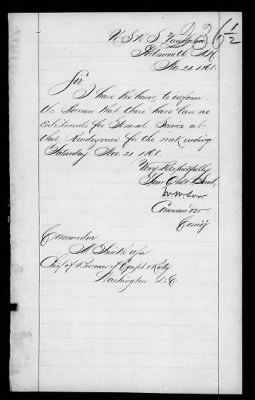 226 1/2
U.S.R.S. Vandalia
Portsmouth N.H.
Nov. 21, 1868.
Sir
I have the honor to inform
the Bureau that there have been no
enlistments for General Service at
this Rendezvous for the week ending
Saturday Nov. 21, 1868.
Very Respectfully
Your Obdt. Servt.
W. W. Low
Commander
Comdg
Commodore
M. Smith USN
Chief of Bureau of Equipt & Rectg
Washington D.C.